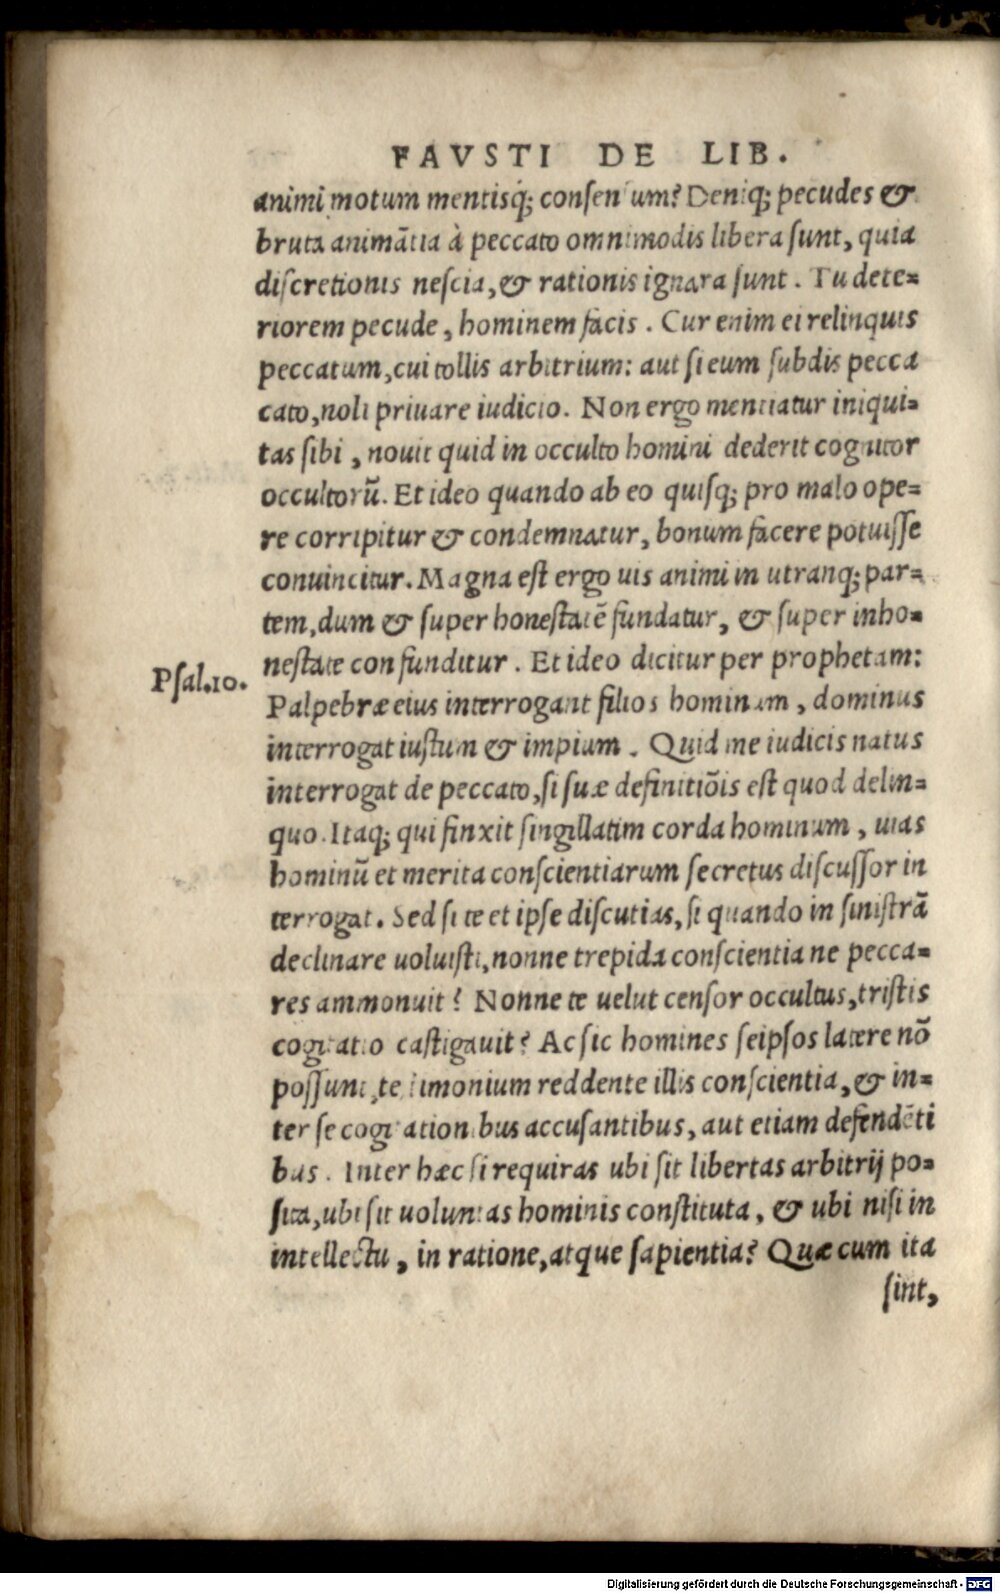 FAVSTI DE LIB.
animi motum mentisq; consensum? Deniq; pecudes &
bruta animātia à peccato omnimodis libera sunt, quia
discretionis nescia, & rationis ignara sunt. Tu dete=
riorem pecude, hominem facis. Cur enim ei relinquis
peccatum, cui tollis arbitrium: aut si eum subdis pecca
cato, noli priuare iudicio. Non ergo mentiatur iniqui=
tas sibi, nouit quid in occulto homini dederit cognitor
occultorū. Et ideo quando ab eo quisq; pro malo ope=
re corripitur & condemnatur, bonum facere potuisse
conuincitur. Magna est ergo uis animi in utranq; par=
tem, dum & super honestatē fundatur, & super inho=
nestate confunditur. Et ideo dicitur per prophetam:
Psal.10.
Palpebræ eius interrogant filios hominum, dominus
interrogat iustum & impium. Quid me iudicis natus
interrogat de peccato, si suæ definitiōis est quod delin=
quo. Itaq; qui finxit singillatim corda hominum, uias
hominū et merita conscientiarum secretus discussor in
terrogat. Sed si te et ipse discutias, si quando in sinistrā
declinare uoluisti, nonne trepida conscientia ne pecca=
res ammonuit? Nonne te uelut censor occultus, tristis
cogitatio castigauit? Ac sic homines seipsos latere nō
possunt, testimonium reddente illis conscientia, & in=
ter se cogitationibus accusantibus, aut etiam defendēti
bus. Inter hæc si requiras ubi sit libertas arbitrij po=
sita, ubi sit uoluntas hominis constituta, & ubi nisi in
intellectu, in ratione, atque sapientia? Quæ cum ita
sint,
Digitalisierung gefördert durch die Deutsche Forschungsgemeinschaft - DFG